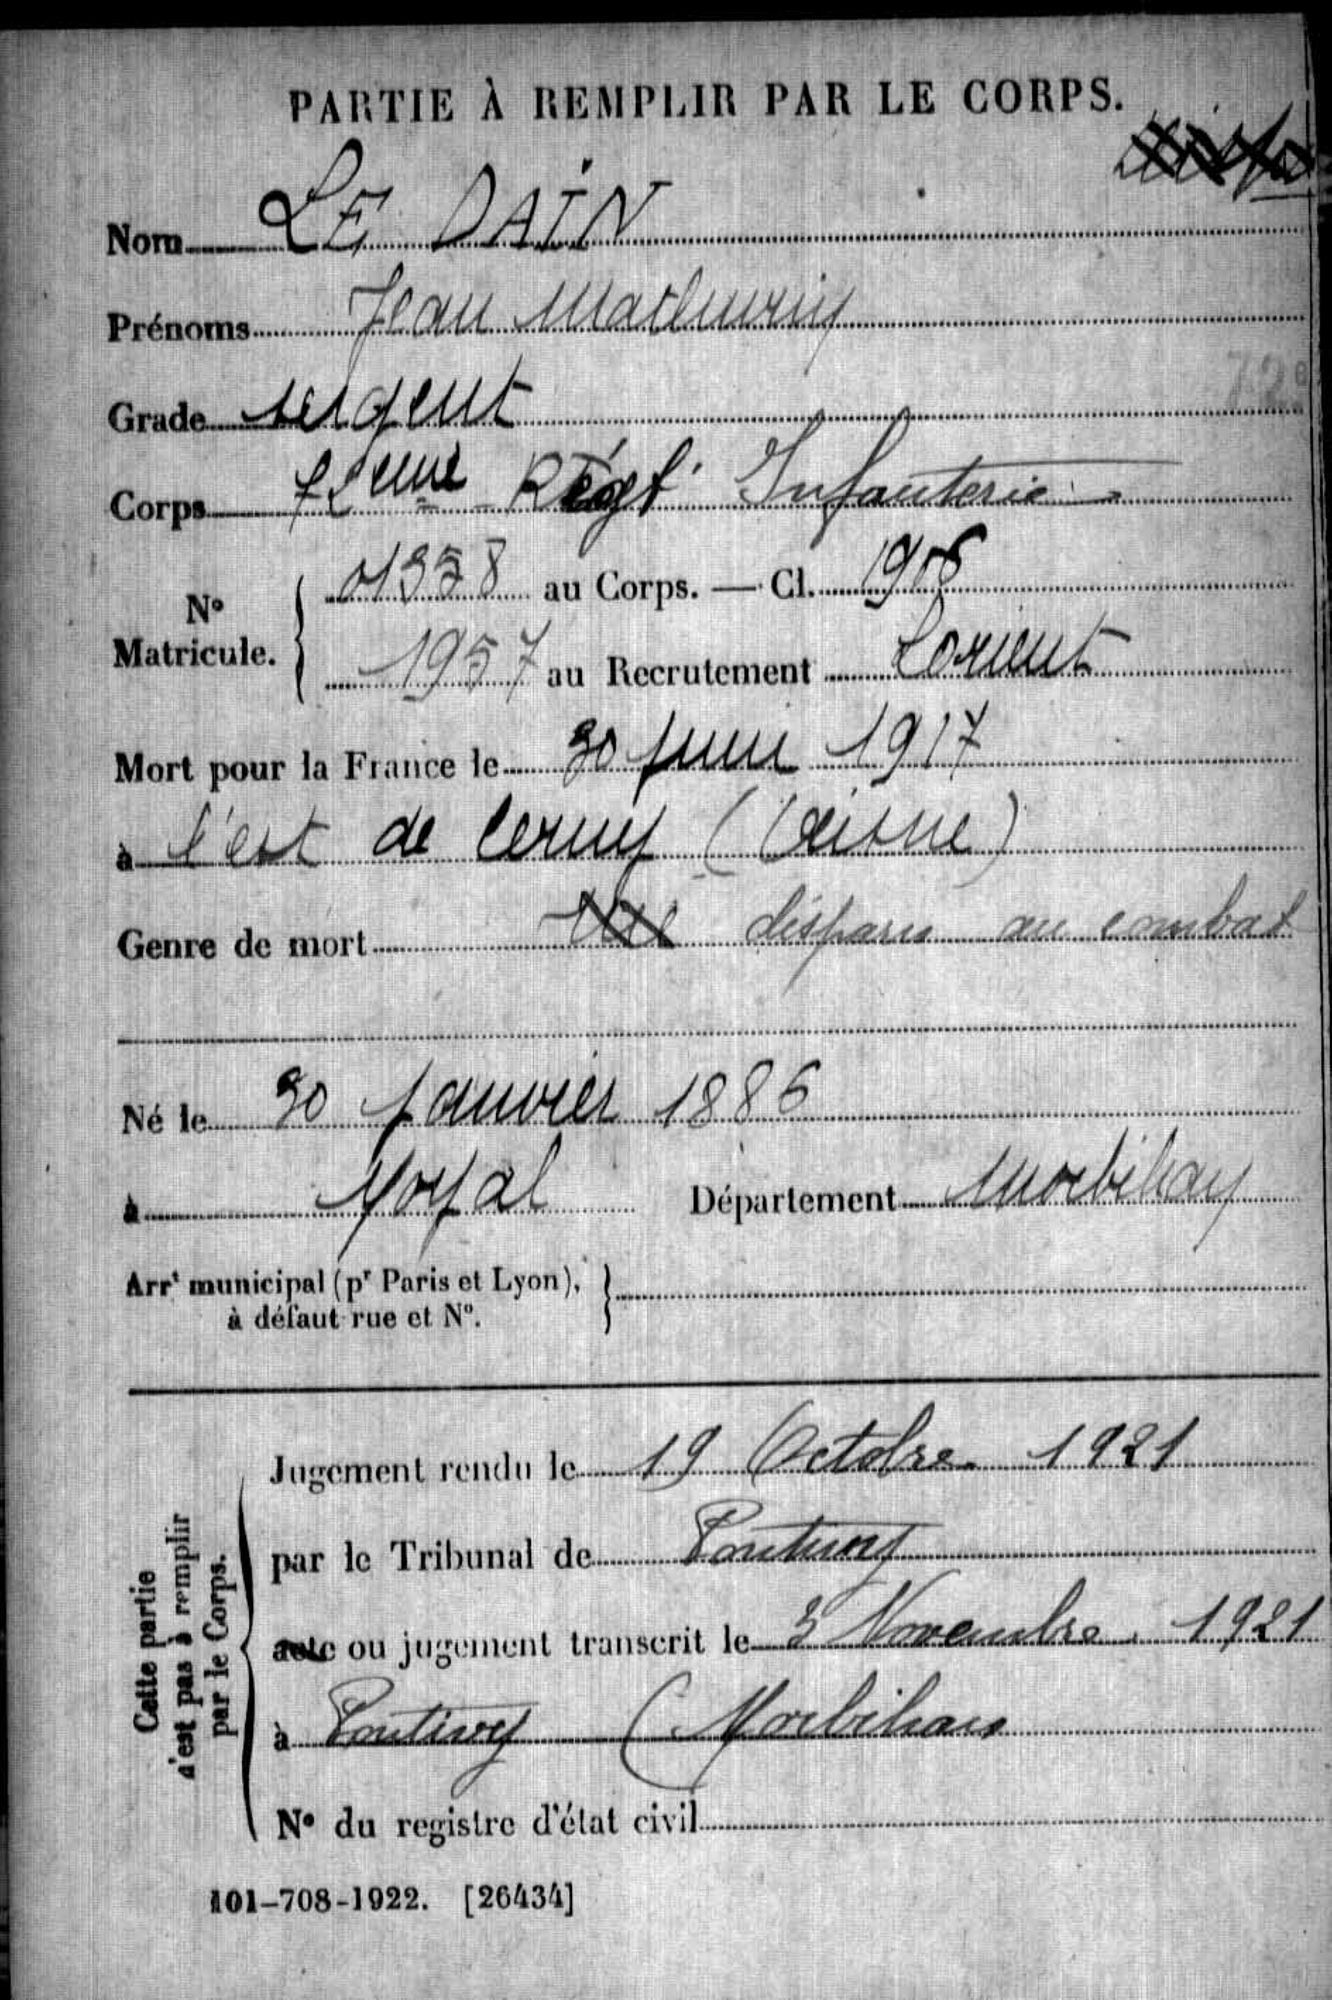 PARTIE À REMPLIR PAR LE CORPS.
Nom LE DAIN
Prénoms Jean Mathurin
72e
Grade sergent
Corps 72eme Régt Infanterie
No Matricule. 01358 au Corps. — Cl. 1906
1957 au Recrutement Lorient
Mort pour la France le 30 juin 1917
à l'est de Cerny (Aisne)
Genre de mort disparu au combat
Né le 30 janvier 1886
à Noyal Département Morbihan
Arrt municipal (pr Paris et Lyon),
à défaut rue et No.
Cette partie
n'est pas à remplir
par le Corps.
Jugement rendu le 19 Octobre 1921
par le Tribunal de Pontivy
acte ou jugement transcrit le 3 Novembre 1921
à Pontivy (Morbihan
No du registre d'état civil
101-708-1922. [26434]